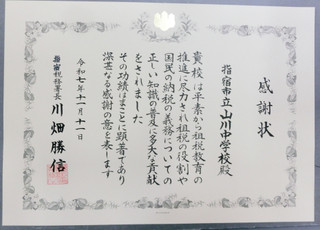 感謝状
指宿市立山川中学校殿
貴校は平素から租税教育の
推進に尽力され租税の役割や
国民の納税の義務についての
正しい知識の普及に多大な貢献
をされました
その功績はまことに顕著であり
深甚なる感謝の意を表します
令和七年十一月十一日
指宿税務署長
川畑勝信